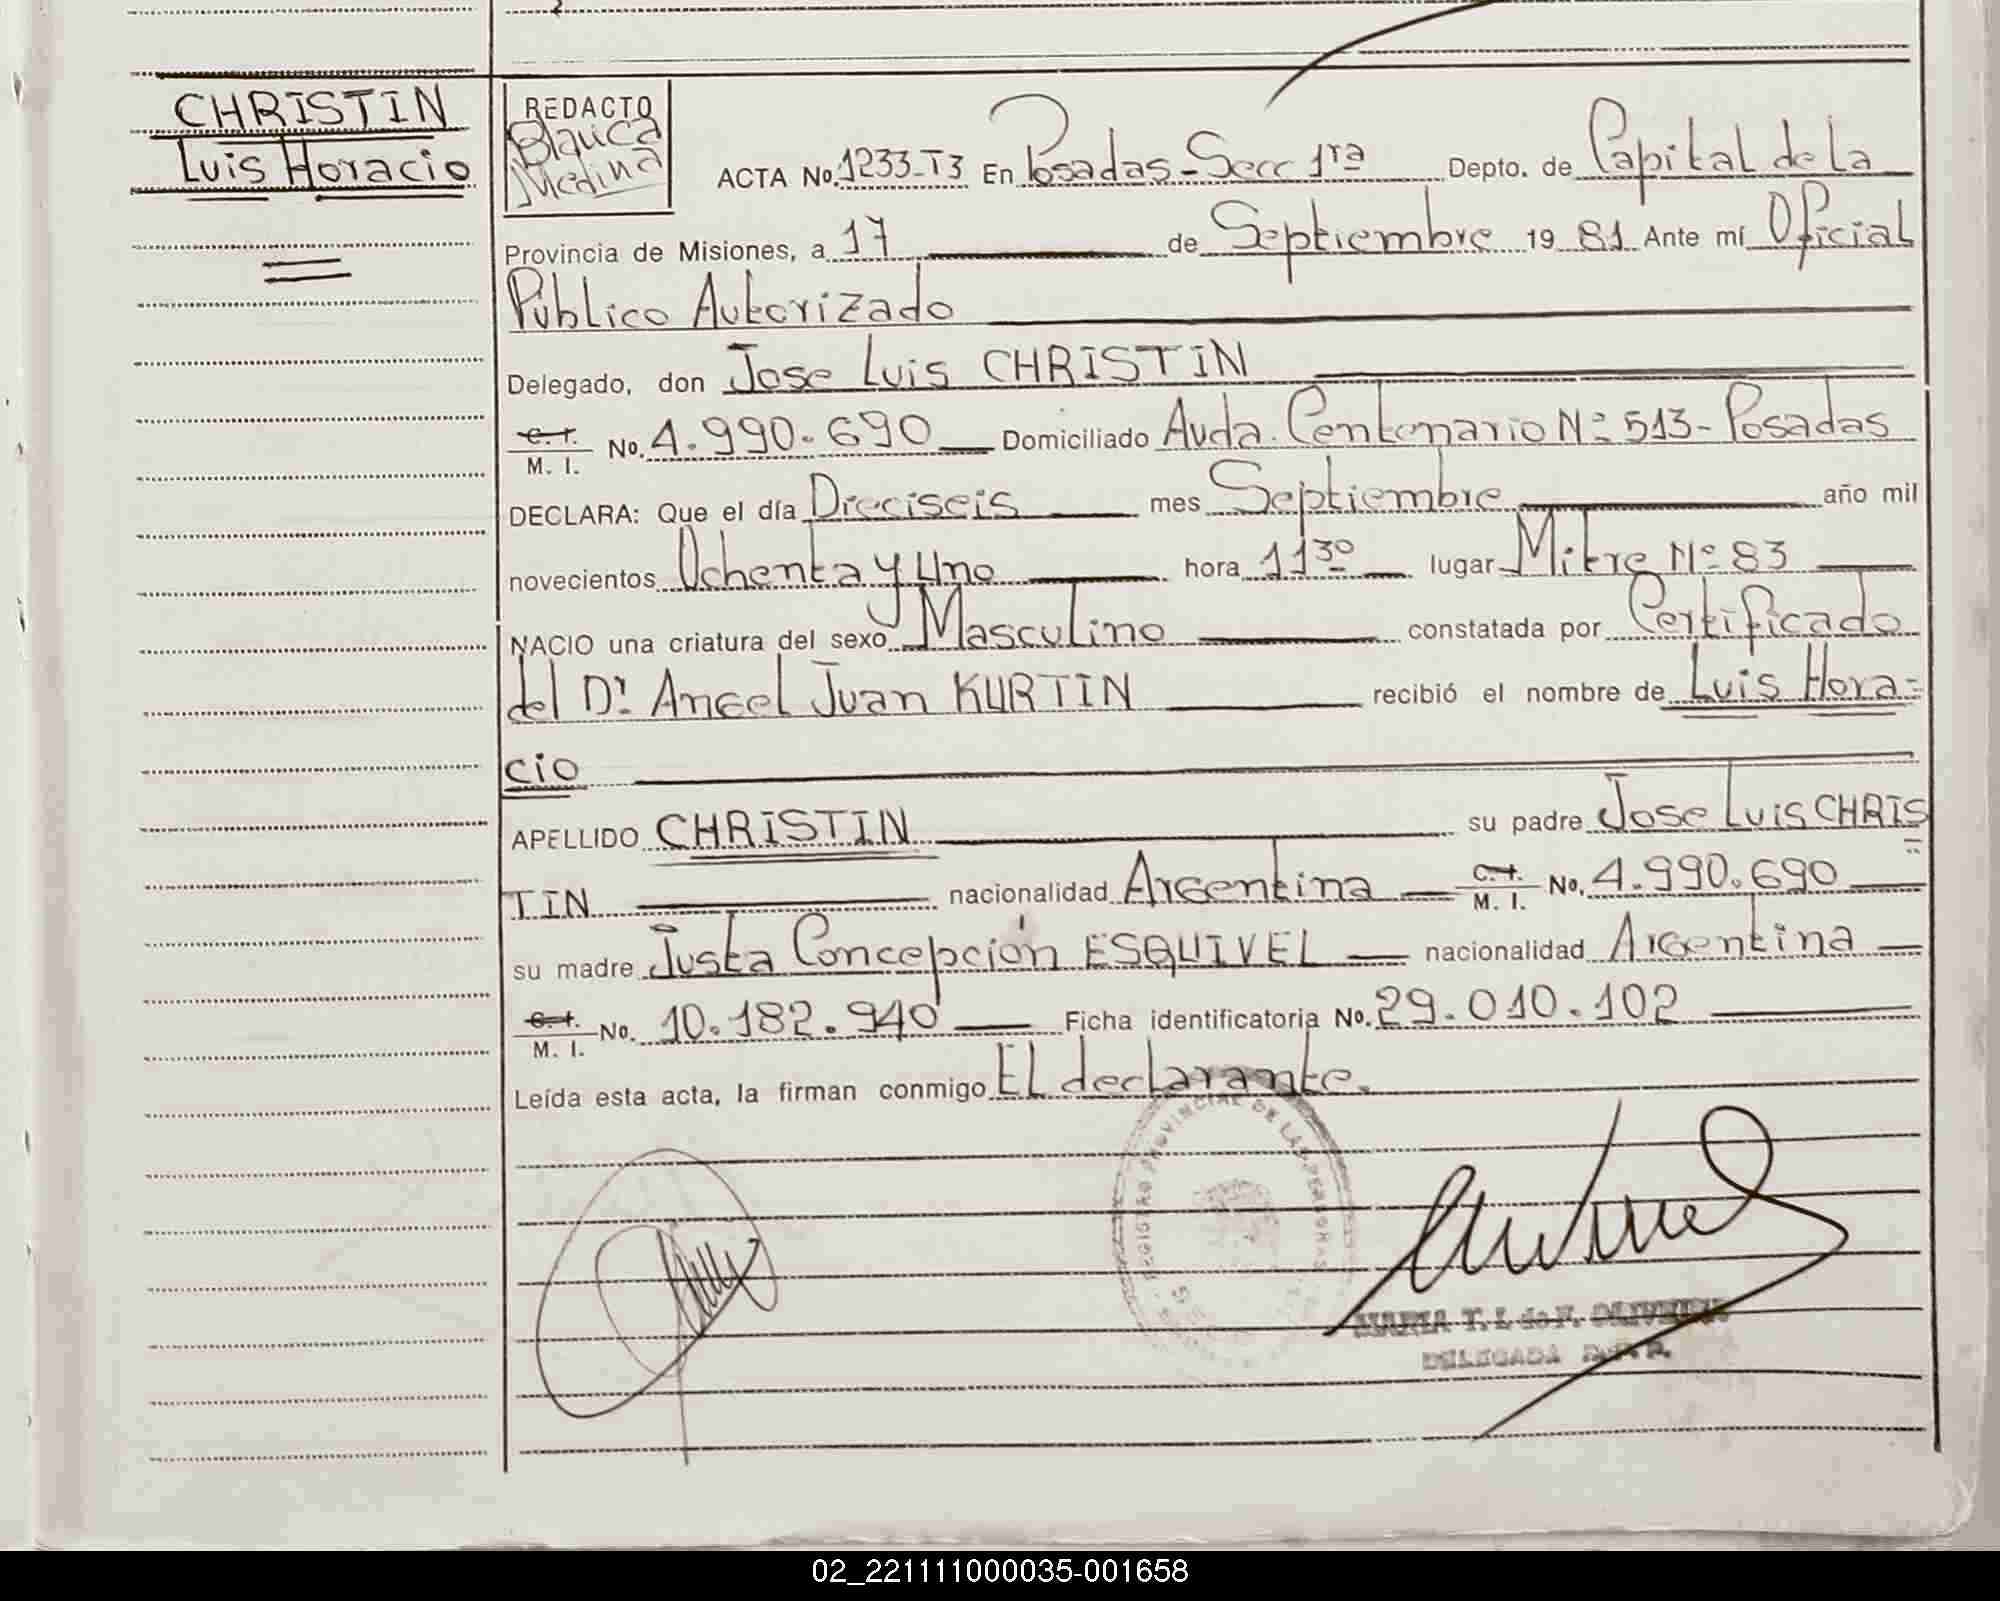 CHRISTIN
Luis Horacio
REDACTO
Blanca
Medina
ACTA No. 1233-T3 En Posadas-Secc 1ra Depto. de Capital de la
Provincia de Misiones, a 17 de Septiembre 19 81 Ante mí Oficial
Público Autorizado
Delegado, don Jose Luis CHRISTIN
C. I. / M. I. No. 4.990.690 Domiciliado Avda. Centenario Nº 513- Posadas
DECLARA: Que el día Dieciseis mes Septiembre año mil
novecientos Ochenta y Uno hora 11 30 lugar Mitre Nº 83
NACIO una criatura del sexo Masculino constatada por Certificado
del Dr. Angel Juan KURTIN recibió el nombre de Luis Hora=
cio
APELLIDO CHRISTIN su padre Jose Luis CHRIS=
TIN nacionalidad Argentina C. I. / M. I. No. 4.990.690
su madre Justa Concepción ESQUIVEL nacionalidad Argentina
C. I. / M. I. No. 10.182.940 Ficha identificatoria No. 29.010.102
Leída esta acta, la firman conmigo El declarante.
REGISTRO PROVINCIAL DE LAS PERSONAS
MARIA T. I. de F.
DELEGADA R.P.P.
02_221111000035-001658